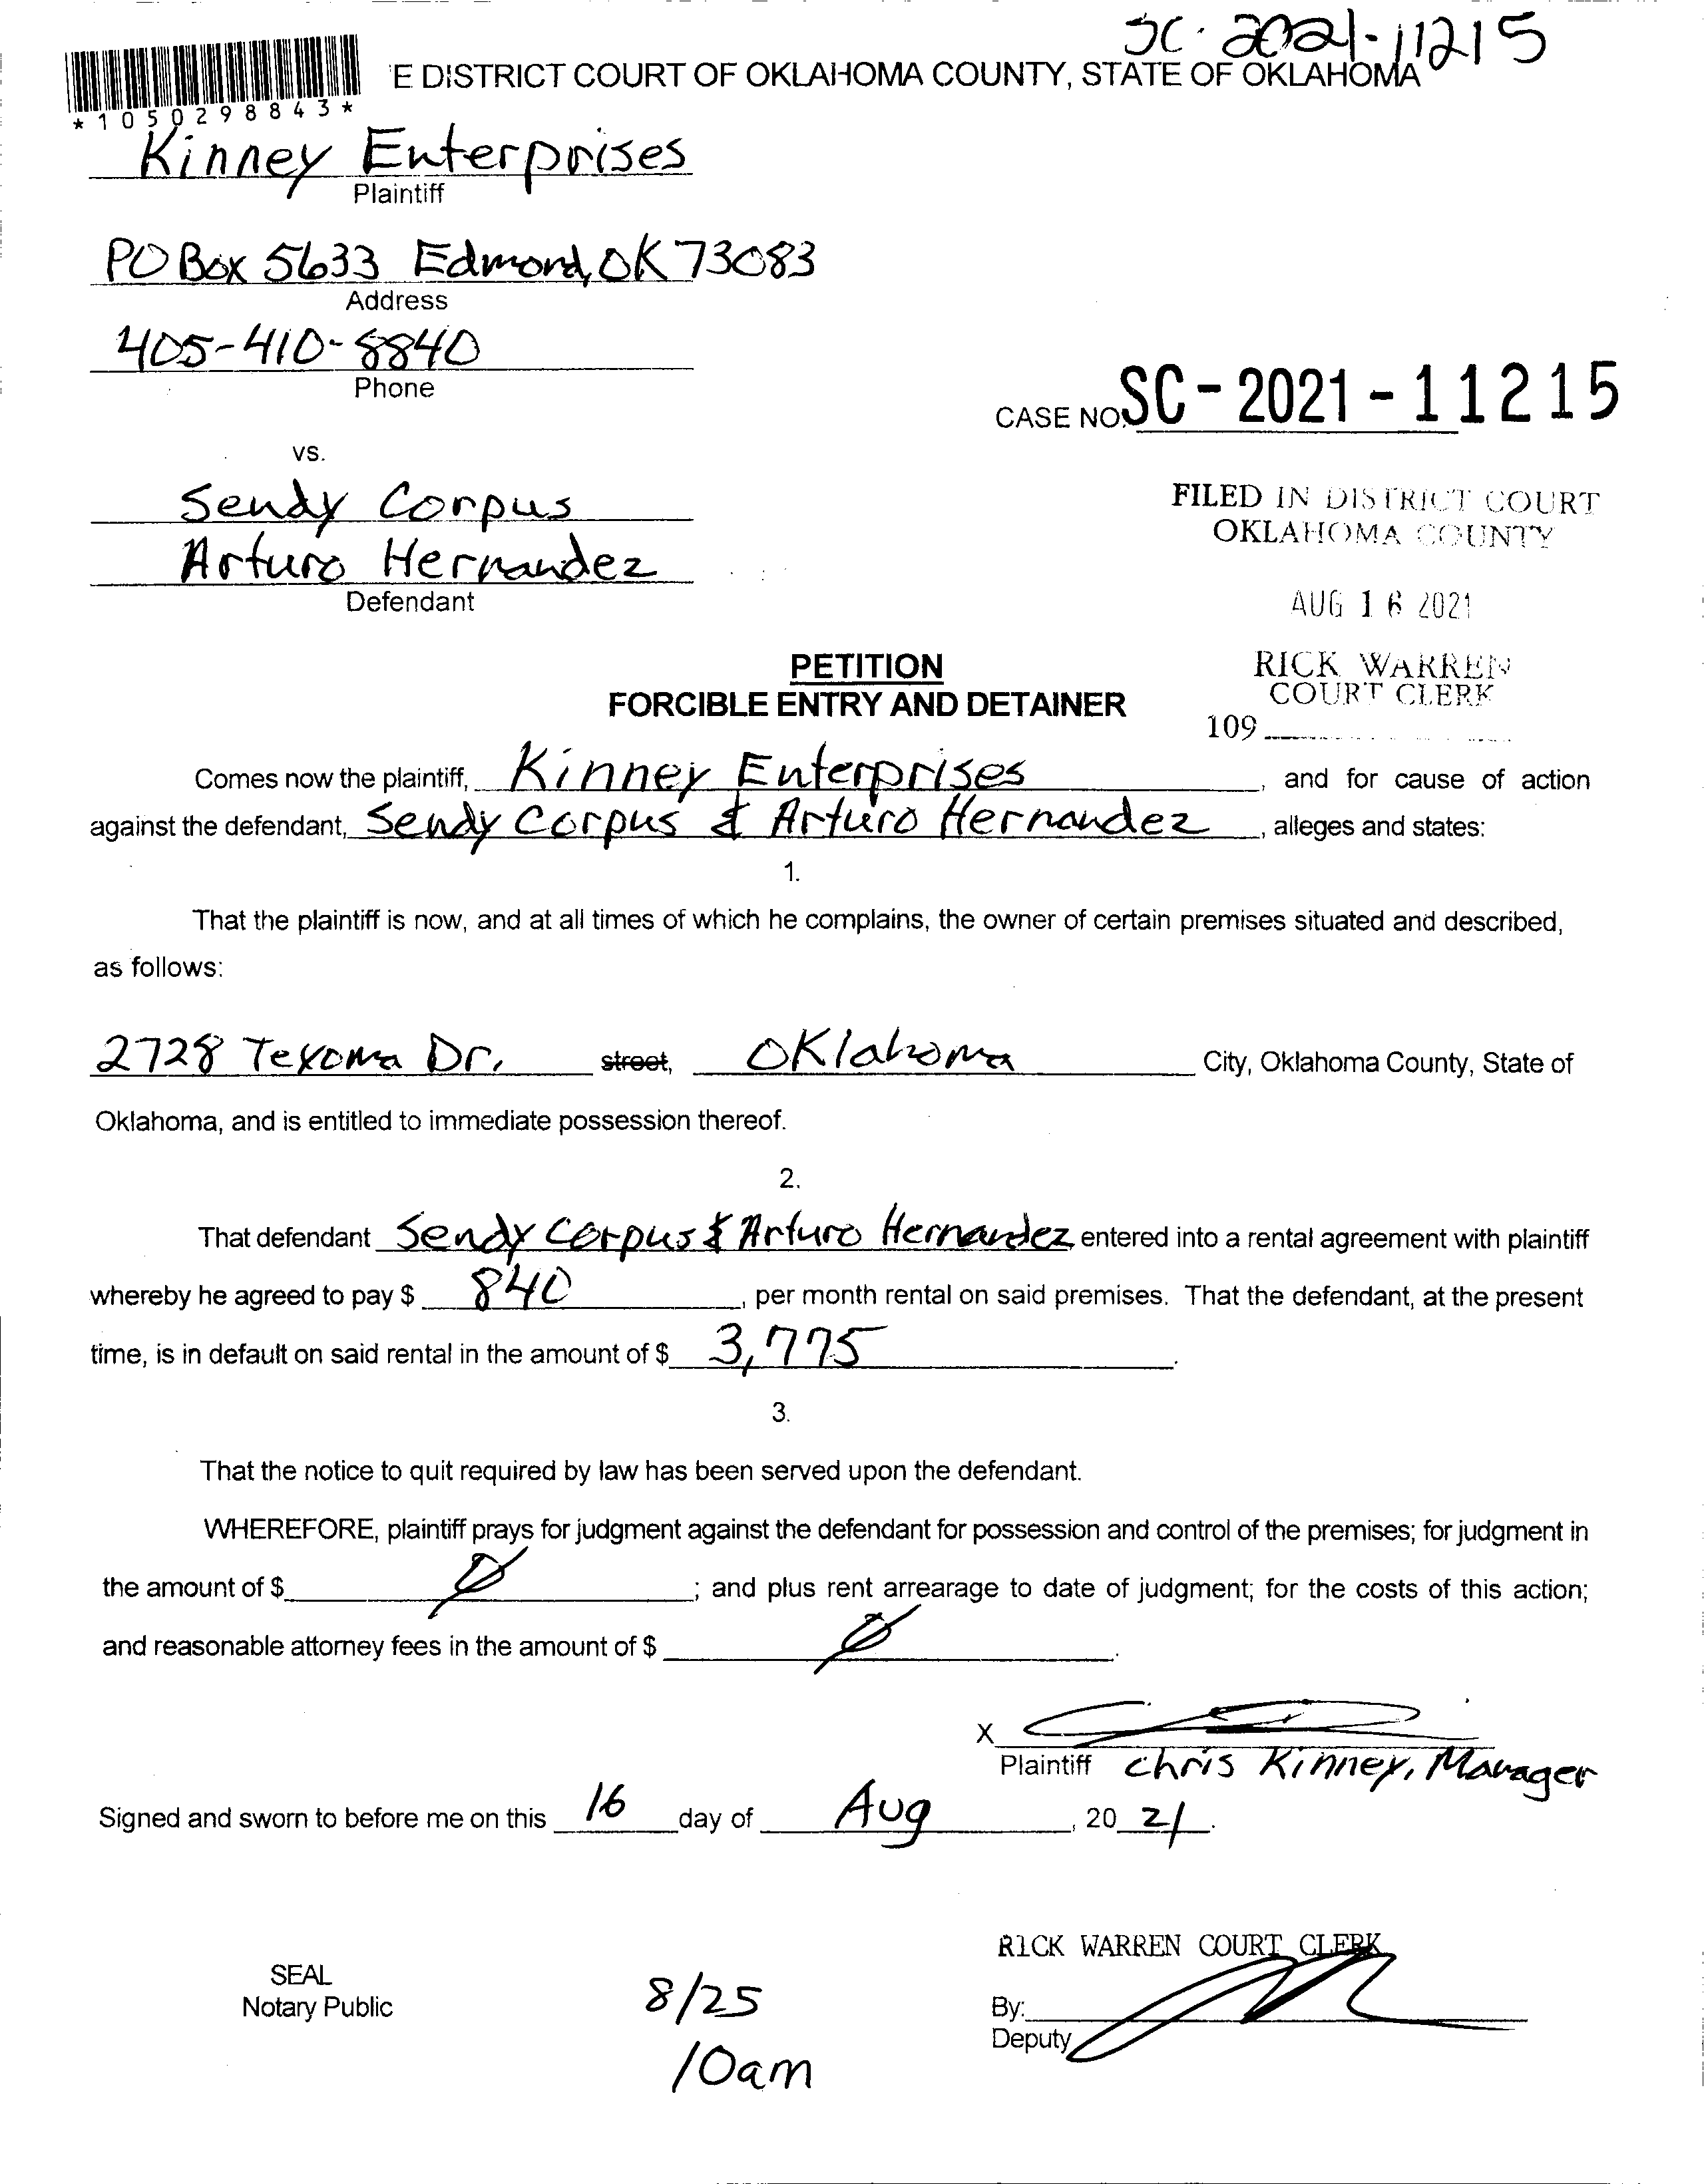 SC-2021-11215
E DISTRICT COURT OF OKLAHOMA COUNTY, STATE OF OKLAHOMA
*1050298843*
Kinney Enterprises
Plaintiff
PO Box 5633 Edmond, OK 73083
Address
405-410-8840
Phone
CASE NO. SC-2021-11215
vs.
Sendy Corpus
Arturo Hernandez
Defendant
FILED IN DISTRICT COURT
OKLAHOMA COUNTY
AUG 16 2021
RICK WARREN
COURT CLERK
109
PETITION
FORCIBLE ENTRY AND DETAINER
Comes now the plaintiff, Kinney Enterprises, and for cause of action
against the defendant, Sendy Corpus & Arturo Hernandez, alleges and states:
1.
That the plaintiff is now, and at all times of which he complains, the owner of certain premises situated and described,
as follows:
2728 Texoma Dr. street, Oklahoma City, Oklahoma County, State of
Oklahoma, and is entitled to immediate possession thereof.
2.
That defendant Sendy Corpus & Arturo Hernandez entered into a rental agreement with plaintiff
whereby he agreed to pay $ 840, per month rental on said premises. That the defendant, at the present
time, is in default on said rental in the amount of $ 3,775.
3.
That the notice to quit required by law has been served upon the defendant.
WHEREFORE, plaintiff prays for judgment against the defendant for possession and control of the premises; for judgment in
the amount of $ Ø; and plus rent arrearage to date of judgment; for the costs of this action;
and reasonable attorney fees in the amount of $ Ø.
X
Plaintiff Chris Kinney, Manager
Signed and sworn to before me on this 16 day of Aug, 20 21.
RICK WARREN COURT CLERK
SEAL
Notary Public
8/25
10am
By:
Deputy